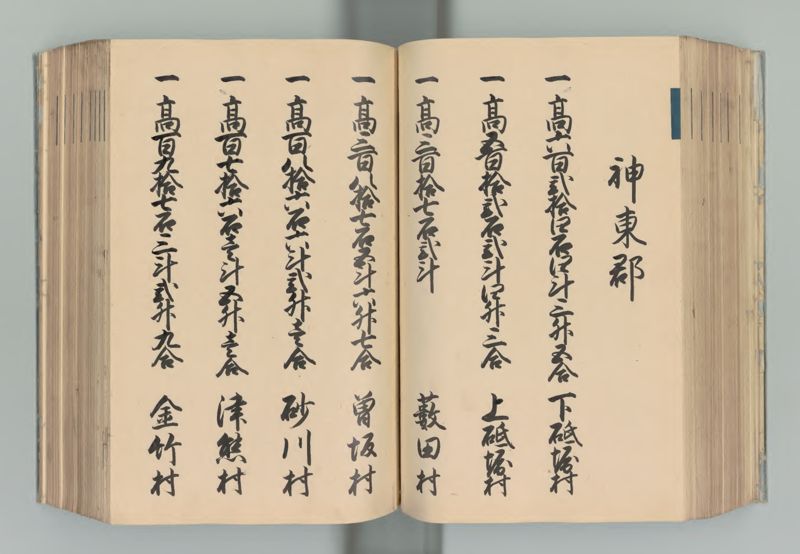 神東郡
一 高六百弐拾四石四斗三升五合 下砥堀村
一 高五百拾弐石弐斗四升三合 上砥堀村
一 高三百拾七石弐斗 藪田村
一 高三百八拾七石五斗六升七合 曽坂村
一 高百八拾六石六斗弐升壱合 砂川村
一 高百七拾六石壱斗五升壱合 津熊村
一 高百九拾七石三斗弐升九合 金竹村